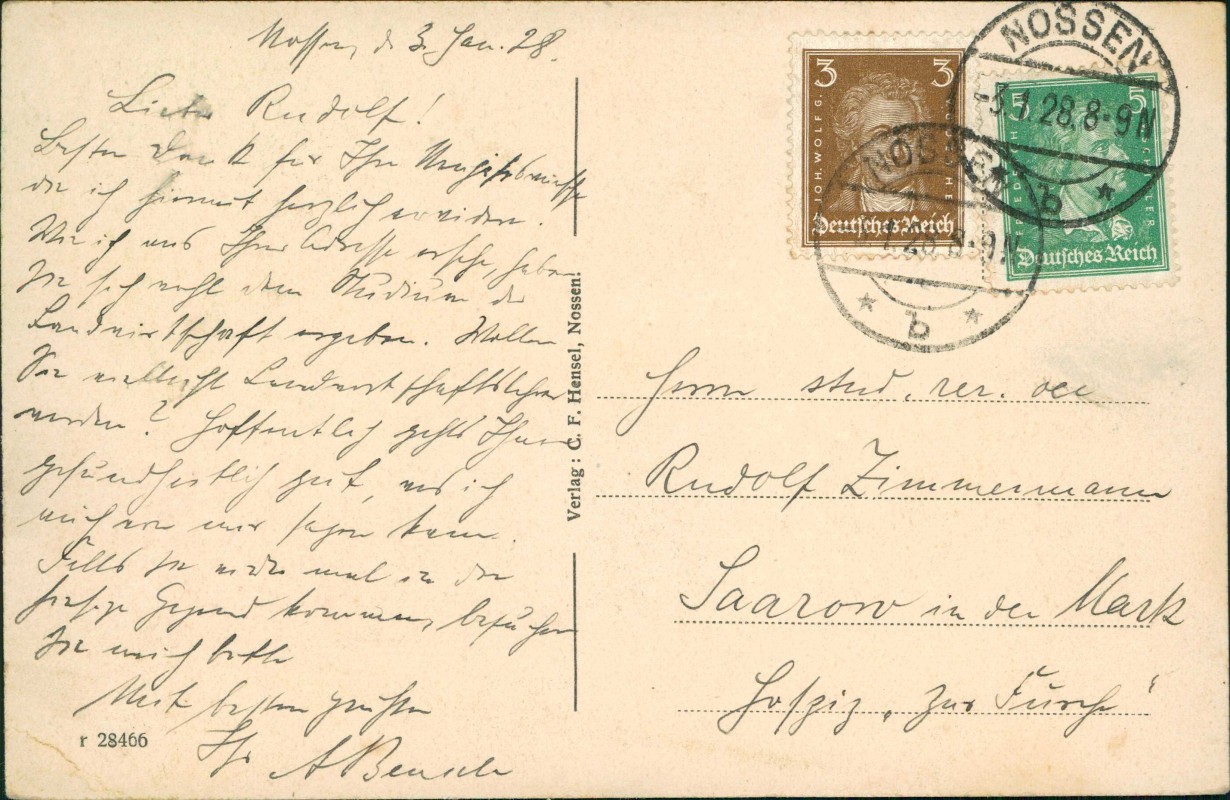 Nossen, d. 3. Jan. 28.
Lieber Rudolf!
Besten Dank für Ihre Neujahrswünsche
die ich hiermit herzlich erwidere.
Wie ich aus Ihrer Adresse ersehe, haben
Sie sich wohl dem Studium der
Landwirtschaft ergeben. Wollen
Sie vielleicht Landwirtschaftslehrer
werden? Hoffentlich gehts Ihnen
gesundheitlich gut, was ich
auch von mir sagen kann.
Falls Sie wieder mal in die
hiesige Gegend kommen, besuchen
Sie mich bitte
Mit besten Grüßen
Ihr
r 28466
Verlag: C. F. Hensel, Nossen.
3 3
JOH. WOLFG.
Deutsches Reich
5
Deutsches Reich
NOSSEN
-3.1.28.8-9N
* b *
NOSSEN
8-9N
* b *
Herrn stud. rer.
Rudolf Zimmermann
Saarow in der Mark
Hospiz „Zur Furche“